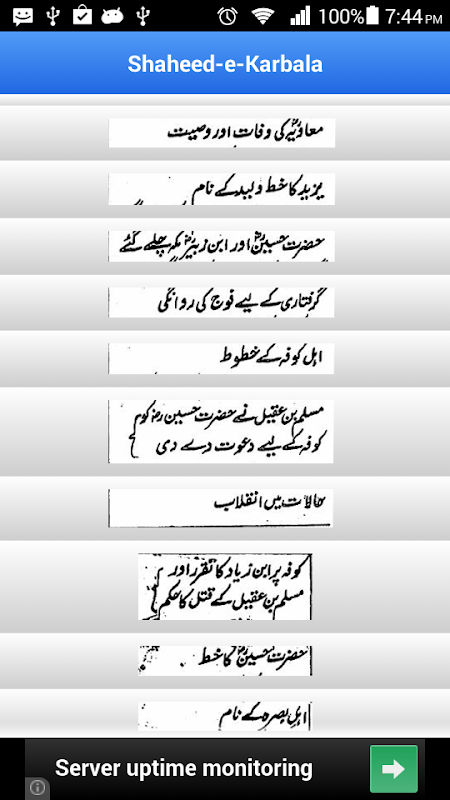 100% 7:44 PM
Shaheed-e-Karbala
معاویہؓ کی وفات اور وصیت
یزید کا خط ولید کے نام
حضرت حسینؓ اور ابن زبیرؓ مکہ چلے گئے
گرفتاری کے لیے فوج کی روانگی
اہل کوفہ کے خطوط
مسلم بن عقیل نے حضرت حسین رضؓ کو
کوفہ کے لیے دعوت دے دی
حالات میں انقلاب
کوفہ پر ابن زیاد کا تقرر اور
مسلم بن عقیل کے قتل کا حکم
حضرت حسینؓ کا خط
اہل بصرہ کے نام
Server uptime monitoring